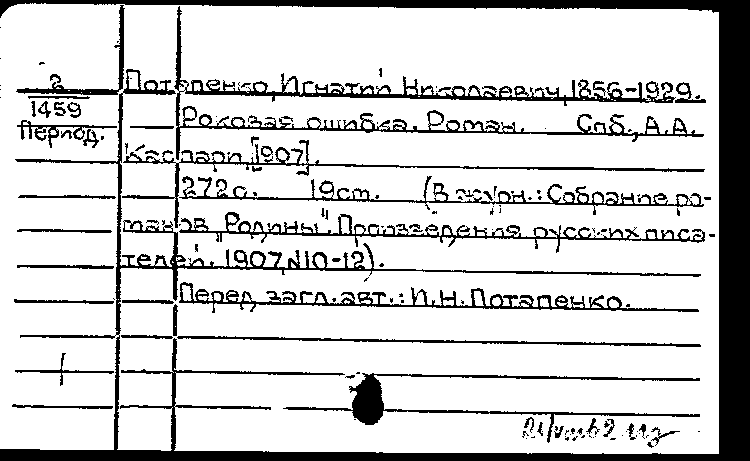 2
1459
Период.
Потапенко, Игнатий Николаевич, 1856-1929.
Роковая ошибка. Роман. Спб., А.А.
Каспари, [1907].
272с. 19см. (В журн.: Собрание ро-
манов "Родины". Произведения русских писа-
телей. 1907, №10-12).
Перед загл. авт.: И.Н. Потапенко.